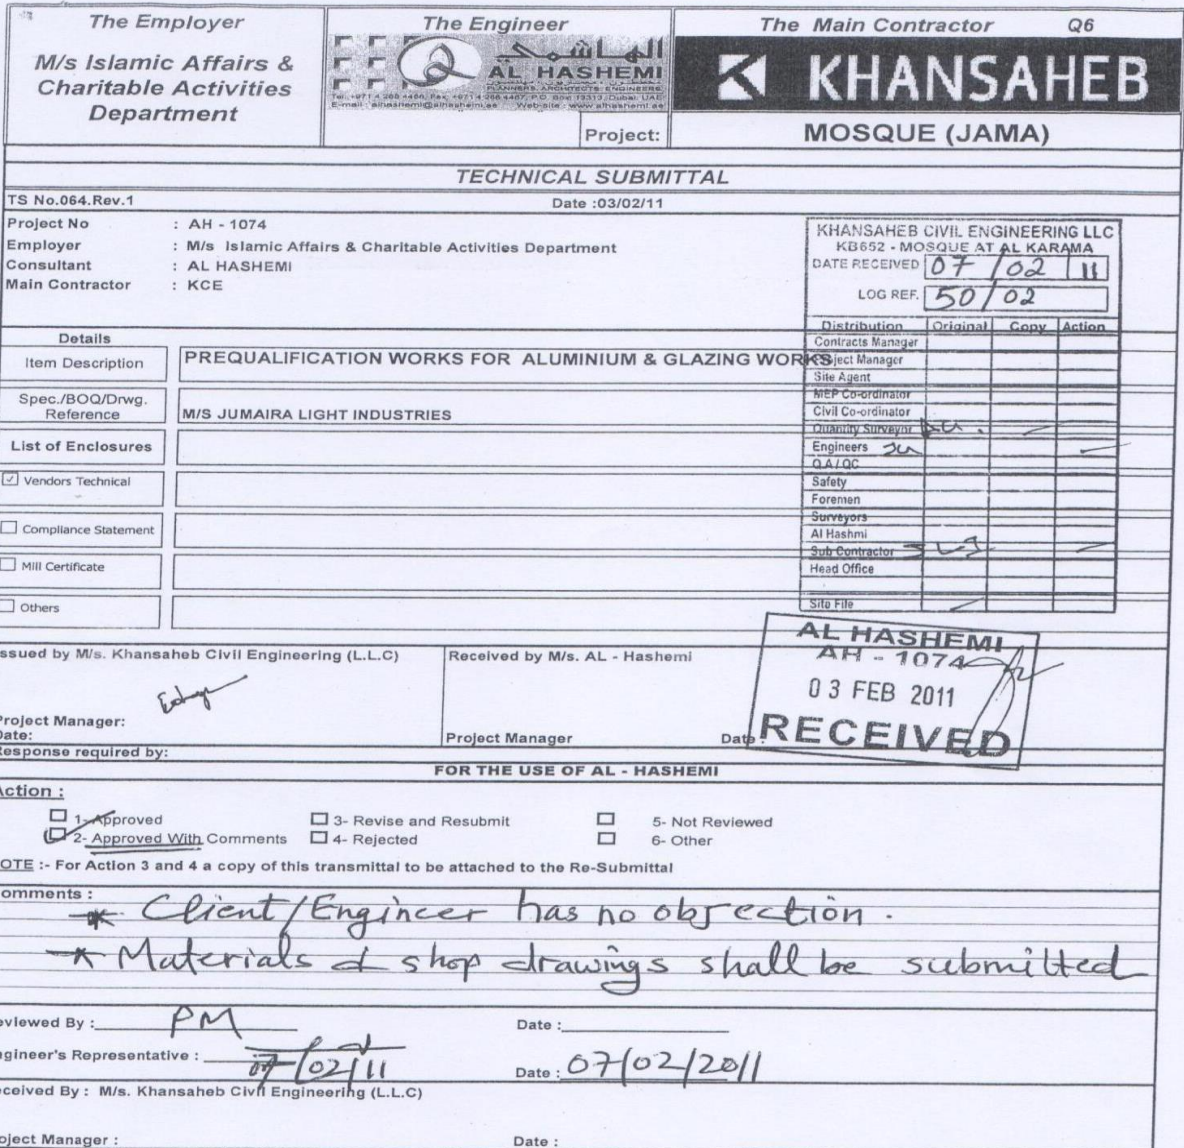 The Employer
M/s Islamic Affairs &
Charitable Activities
Department
The Engineer
الهاشمي
AL HASHEMI
PLANNERS. ARCHITECTS. ENGINEERS
E-mail : alhashemi@alhashemi.ae Web-site : www.alhashemi.ae
The Main Contractor Q6
KHANSAHEB
Project:
MOSQUE (JAMA)
TECHNICAL SUBMITTAL
TS No.064.Rev.1
Date :03/02/11
Project No : AH - 1074
Employer : M/s Islamic Affairs & Charitable Activities Department
Consultant : AL HASHEMI
Main Contractor : KCE
KHANSAHEB CIVIL ENGINEERING LLC
KB652 - MOSQUE AT AL KARAMA
DATE RECEIVED 07/02/11
LOG REF. 50/02
Distribution Original Copy Action
Contracts Manager
Project Manager
Site Agent
MEP Co-ordinator
Civil Co-ordinator
Quantity Surveyor
Engineers
Q.A / QC
Safety
Foremen
Surveyors
Al Hashmi
Sub Contractor
Head Office
Site File
Details
Item Description
PREQUALIFICATION WORKS FOR ALUMINIUM & GLAZING WORKS
Spec./BOQ/Drwg.
Reference
M/S JUMAIRA LIGHT INDUSTRIES
List of Enclosures
Vendors Technical
Compliance Statement
Mill Certificate
Others
ssued by M/s. Khansaheb Civil Engineering (L.L.C)
Received by M/s. AL - Hashemi
AL HASHEMI
AH - 1074
03 FEB 2011
RECEIVED
Project Manager:
Date:
Project Manager
Date :
Response required by:
FOR THE USE OF AL - HASHEMI
Action :
1- Approved
2- Approved With Comments
3- Revise and Resubmit
4- Rejected
5- Not Reviewed
6- Other
OTE :- For Action 3 and 4 a copy of this transmittal to be attached to the Re-Submittal
omments :
* Client/Engineer has no objection.
* Materials & shop drawings shall be submitted
eviewed By : PM
Date :
ngineer's Representative : 07/02/11
Date : 07/02/2011
eceived By : M/s. Khansaheb Civil Engineering (L.L.C)
oject Manager :
Date :